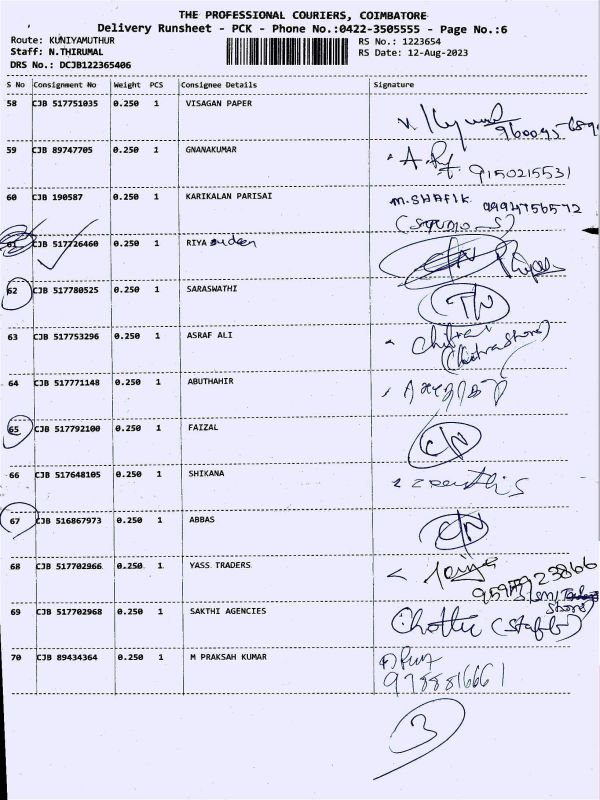 THE PROFESSIONAL COURIERS, COIMBATORE
Delivery Runsheet - PCK - Phone No.:0422-3505555 - Page No.:6
Route: KUNIYAMUTHUR
Staff: N.THIRUMAL
DRS No.: DCJB122365406
RS No.: 1223654
RS Date: 12-Aug-2023
S No Consignment No Weight PCS Consignee Details Signature
58 CJB 517751035 0.250 1 VISAGAN PAPER
59 CJB 89747705 0.250 1 GNANAKUMAR 9150215531
60 CJB 190587 0.250 1 KARIKALAN PARISAI M.SHAFIK 9994756572
61 CJB 517726460 0.250 1 RIYA
62 CJB 517780525 0.250 1 SARASWATHI
63 CJB 517753296 0.250 1 ASRAF ALI
64 CJB 517771148 0.250 1 ABUTHAHIR
65 CJB 517792100 0.250 1 FAIZAL
66 CJB 517648105 0.250 1 SHIKANA
67 CJB 516867973 0.250 1 ABBAS
68 CJB 517702966 0.250 1 YASS TRADERS
69 CJB 517702968 0.250 1 SAKTHI AGENCIES
70 CJB 89434364 0.250 1 M PRAKSAH KUMAR
3